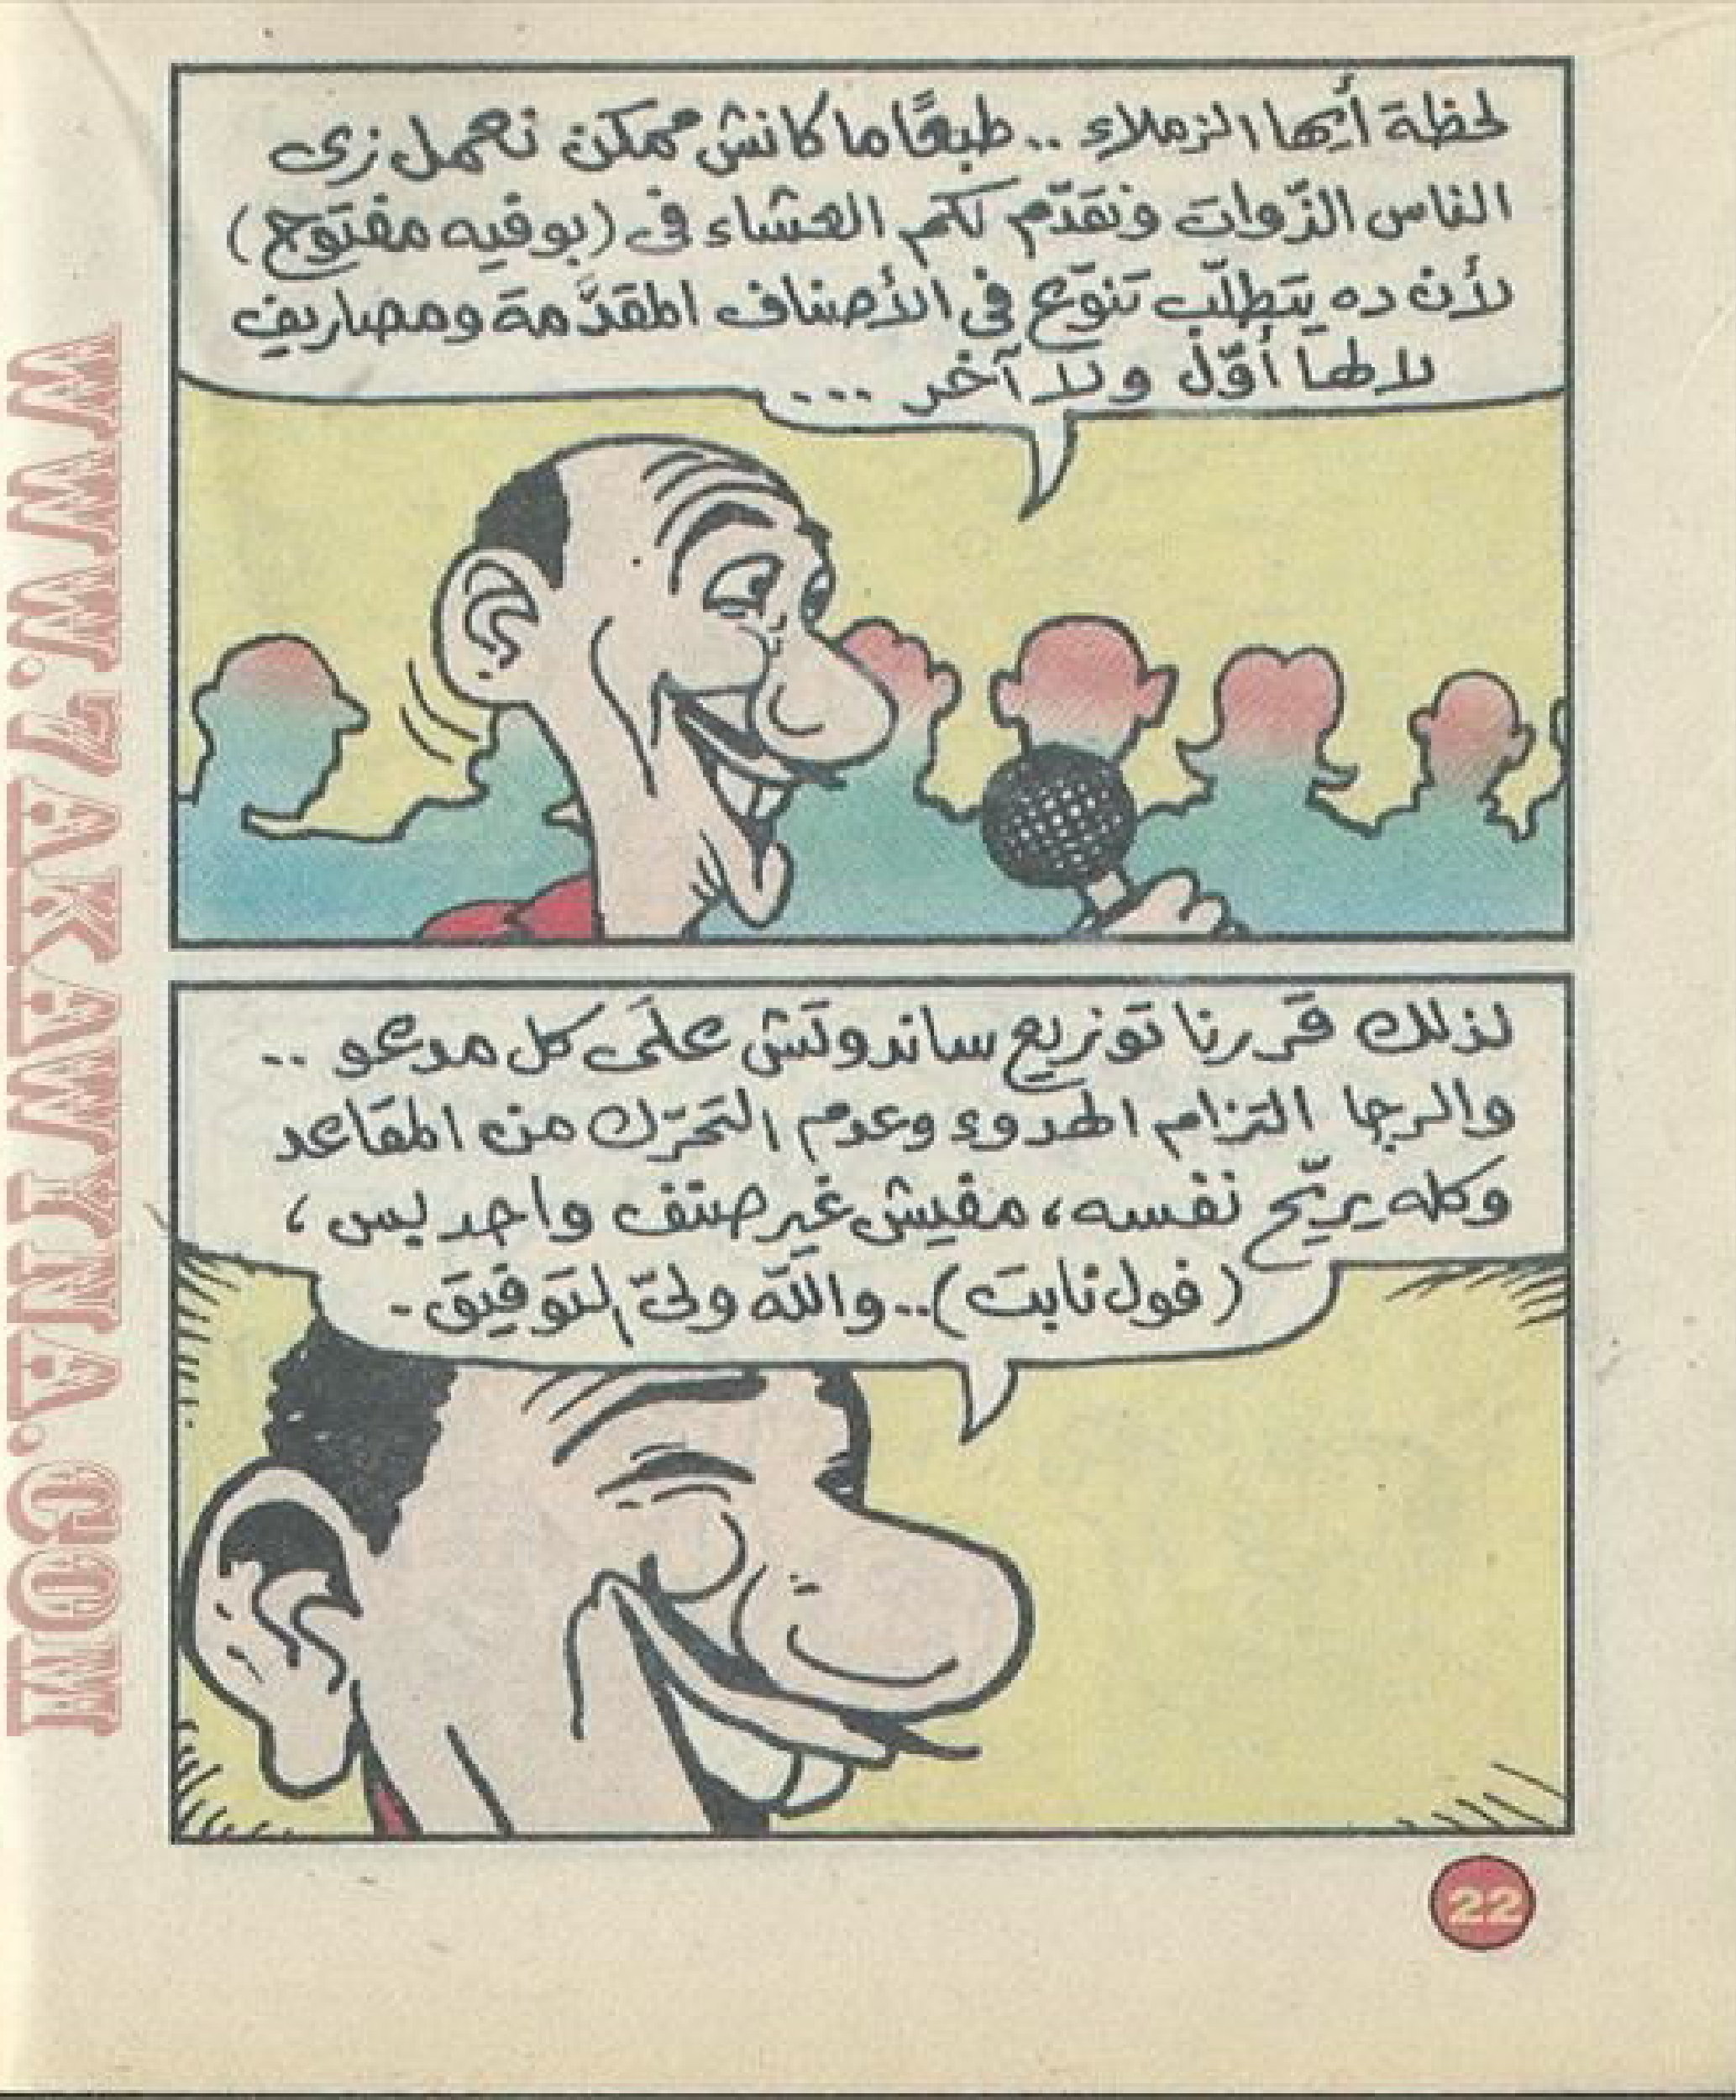 لحظة أيها الزملاء .. طبعًا ما كانش ممكن نعمل زى
الناس الذّوات ونقدّم لكم العشاء فى (بوفيه مفتوح)
لأن ده يتطلّب تنوّع فى الأصناف المقدَّمة ومصاريف
لا لها أوّل ولا آخر ...
لذلك قررنا توزيع ساندوتش على كل مدعو ..
والرجا التزام الهدوء وعدم التحرّك من المقاعد
وكله يريّح نفسه، مفيش غير صنف واحد بس،
(فول نابت) .. والله ولىّ التوفيق -
22
WWW.7AKAWINA.COM